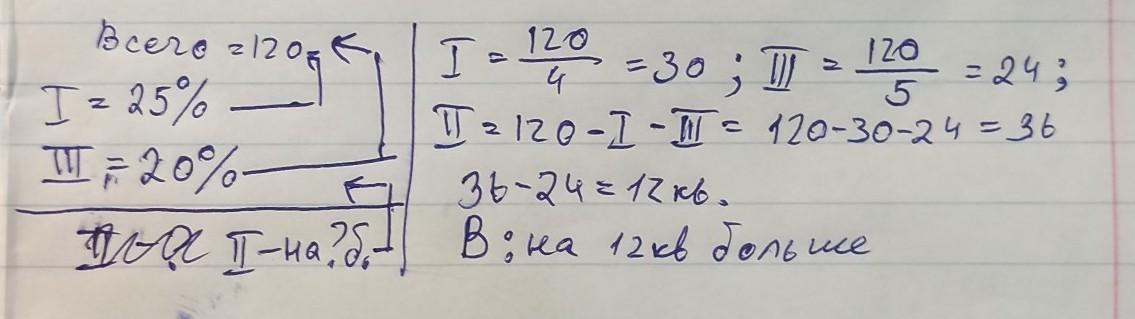 Всего = 120
I = 25%
III = 20%
II-на?б.
I = 120/4 = 30; III = 120/5 = 24;
II = 120-I-III = 120-30-24 = 36
36-24=12кв.
В: на 12кв больше